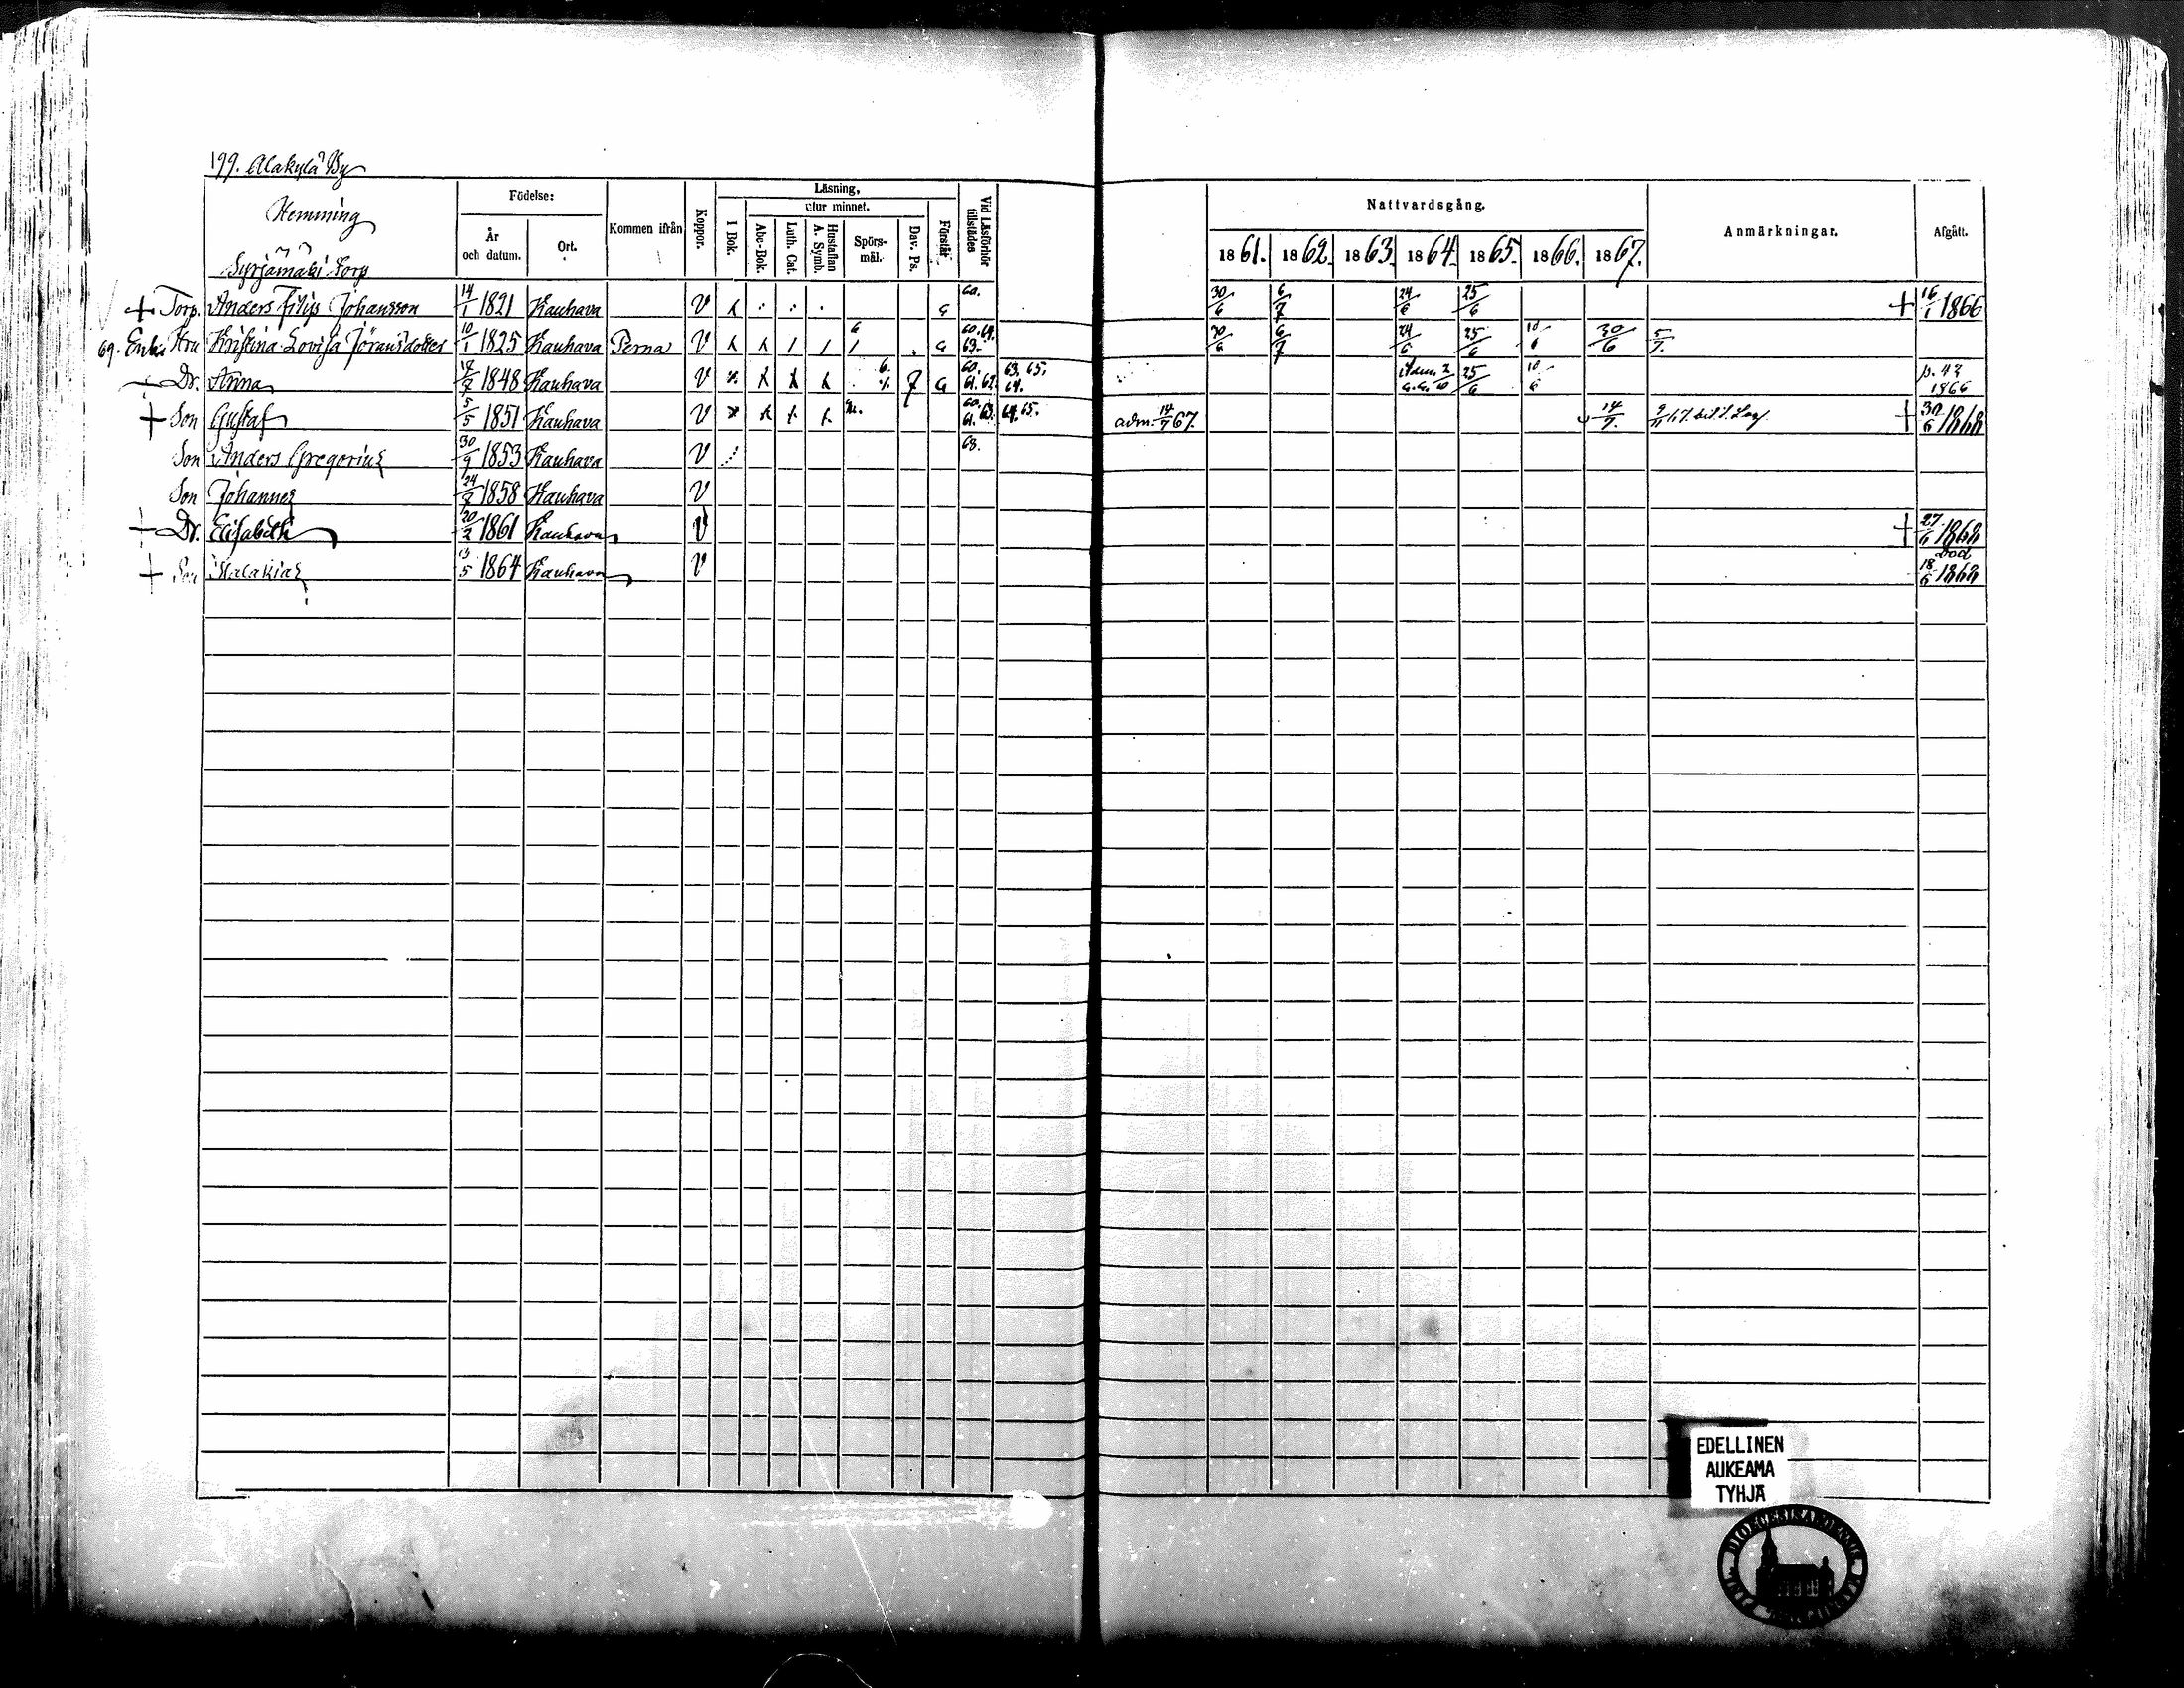 199. Alakylä By
Hemming
Syrjämäki Torp
Födelse:
År och datum.
Ort.
Kommen ifrån
Koppor.
Läsning,
utur minnet.
I Bok.
Abc-Bok.
Luth. Cat.
Hustaflan A. Symb.
Spörs-mål.
Dav. Ps.
Förstår
Vid Läsförhör tillstädes
Nattvardsgång.
1861. 1862. 1863. 1864. 1865. 1866. 1867.
Anmärkningar.
Afgått.
+ Torp. Anders Filip Johansson 14/1 1821 Kauhava V 60. 30/6 6/7 24/6 25/6 + 16/1 1866
69. Enka Hru Kristina Lovisa Jöransdotter 10/1 1825 Kauhava Perna V 60. 64. 63. 30/6 6/7 24/6 25/6 10/6 30/6 5/7.
Dr. Anna 1848 Kauhava V 60. 61. 62. 63. 65. 64. 25/6 10/6 p. 42 1866
+ Son Gustaf 5/5 1851 Kauhava V 60. 61. 63. 64. 65. adm. 14/7 67. 14/7. + 30/6 1868
Son Anders Gregorius 30/9 1853 Kauhava V 63.
Son Johannes 24/7 1858 Kauhava V
+ Dr. Elisabeth 20/2 1861 Kauhava V + 27/6 1868
+ Son Malakias 13/5 1864 Kauhava V död 18/6 1868
EDELLINEN
AUKEAMA
TYHJÄ